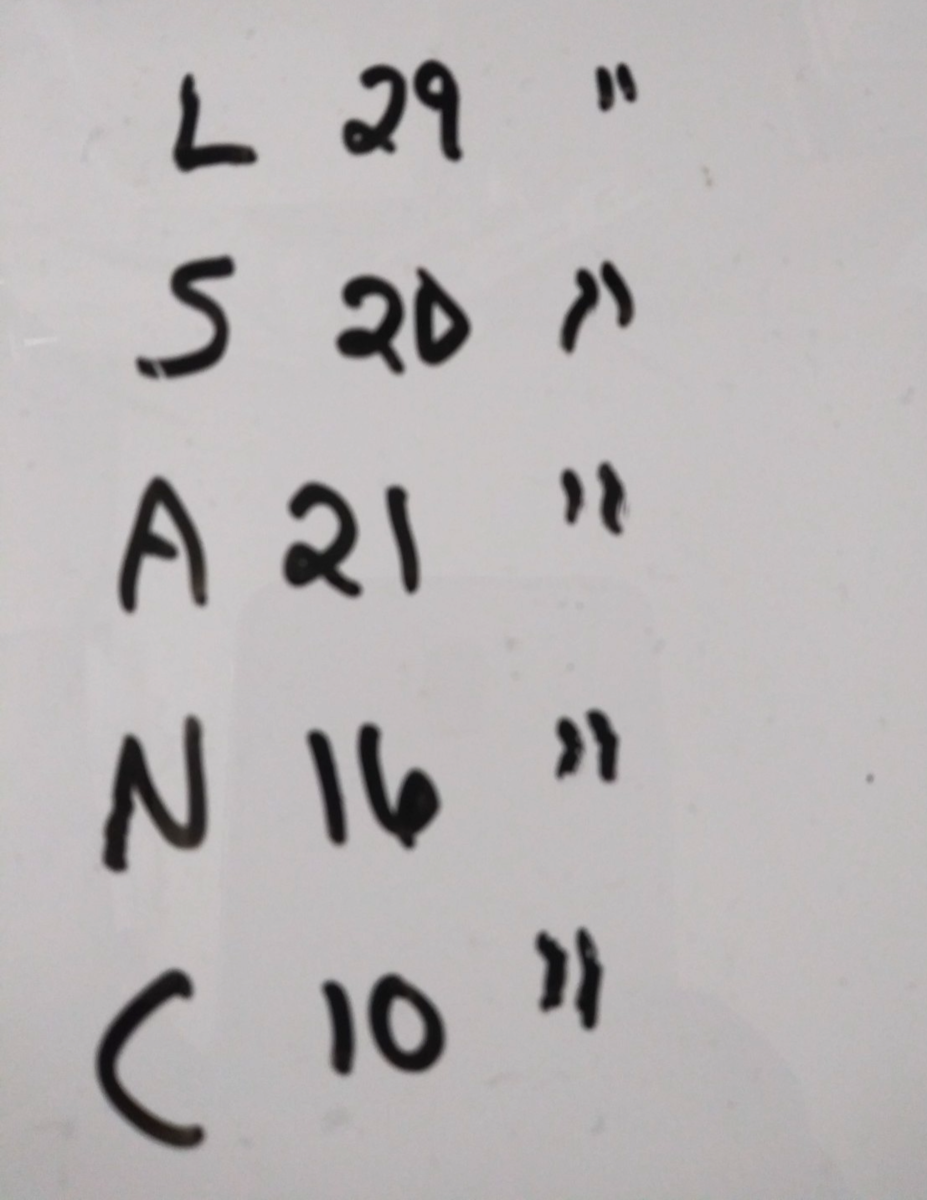 L 29 "
S 20 "
A 21 "
N 16 "
C 10 "